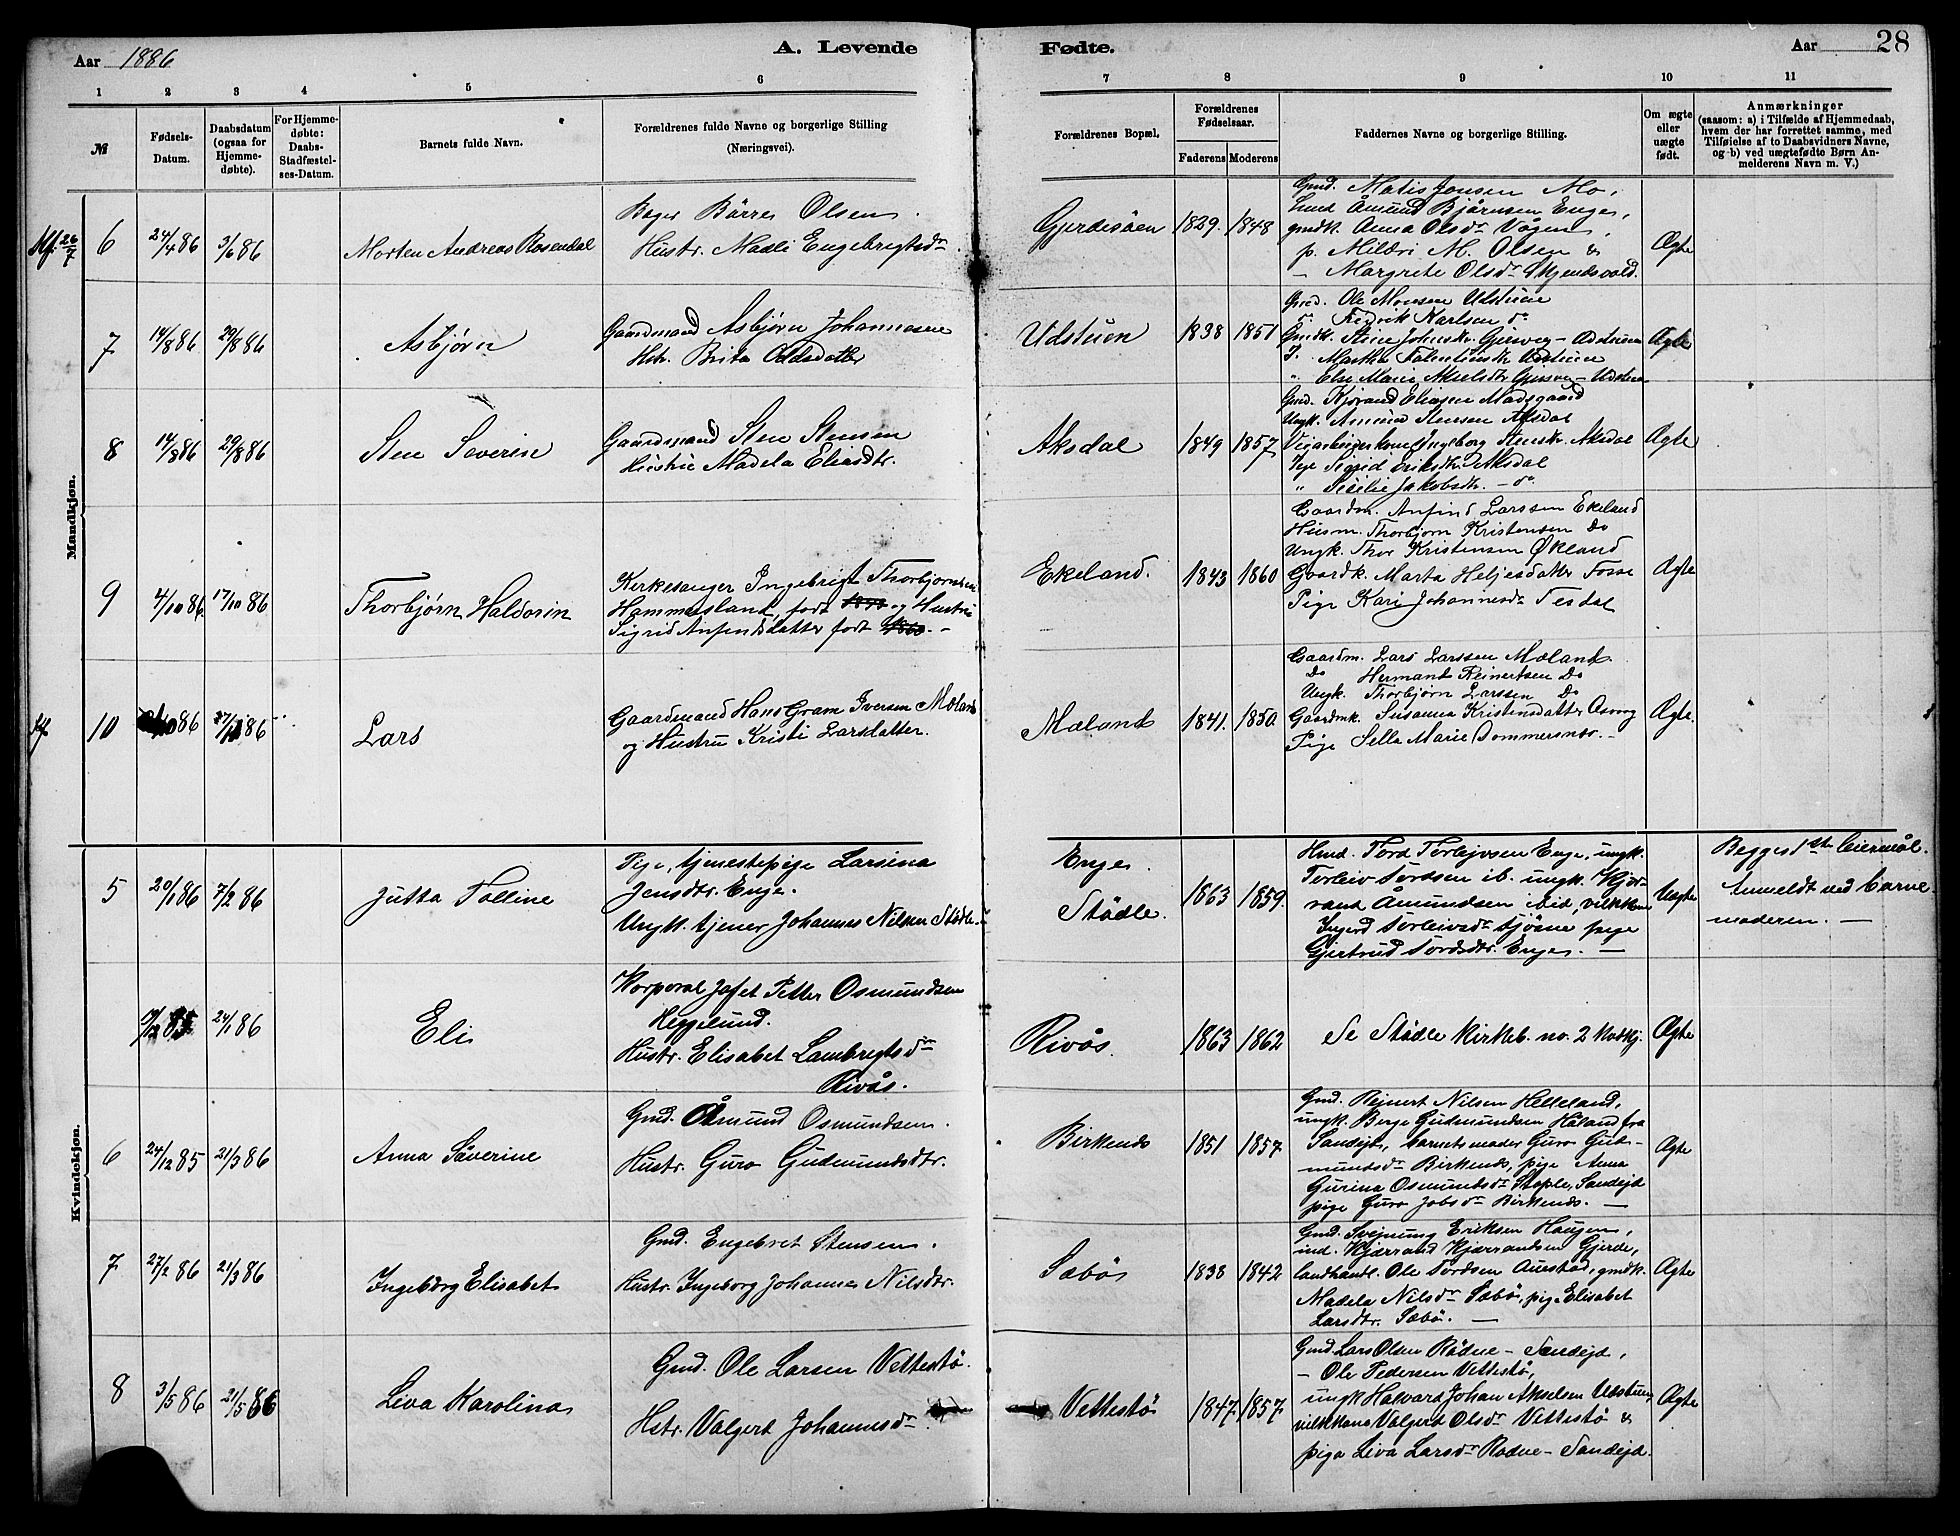 Aar 1886
A. Levende
Fødte.
Aar
28
1 2 3 4 5 6 7 8 9 10 11
№
Fødsels-
Datum.
Daabsdatum
(ogsaa for
Hjemme-
døbte).
For Hjemme-
døbte:
Daabs-
Stadfæstel-
ses-Datum.
Barnets fulde Navn.
Forældrenes fulde Navne og borgerlige Stilling
(Næringsvei).
Forældrenes Bopæl.
Forældrenes
Fødselsaar.
Faderens Moderens
Faddernes Navne og borgerlige Stilling.
Om ægte
eller
uægte
født.
Anmærkninger
(saasom: a) i Tilfælde af Hjemmedaab,
hvem der har forrettet samme, med
Tilføielse af to Daabsvidners Navne,
og b) ved uægtefødte Børn An-
melderens Navn m. V.)
Mandkjøn.
26/7
6
24/4 86
3/6 86
Morten Andreas Rosendal
Bager Børres Olsen
Hustr. Madli Engebrigtsdr
Gjerdesøen
1829. 1848
Gmd. Matis Jonsen Mo,
Åmund Bjørnsen Enge,
gmdk. Anna Olsdr Vågen
p. Mildri M. Olsen &
– Margrete Olsdr Skjendsvold.
Ægte
7
14/8 86
29/8 86
Asbjørn
Gaardmand Asbjørn Johannesen
Hstr. Brita Oldsdatter
Udstuen
1838 1851
Gmd. Ole Monsen Udstuen
d. Fredrik Karlsen do
Gmdk. Stine Johnsdr. Gjersveg – Udstuen
Martha Udstuen
" Else Marie Akselsdtr – Udstuen
Ægte
8
14/8 86
29/8 86
Sten Severin
Gaardmand Sten Stensen
Hustru Madela Eliasdtr.
Aksdal
1849 1857
Gmd. Kjørand Eliasen Madsgaard
Ungk. Stensen Aksdal
Ingeborg Stensdr. Aksdal
Sigrid Aksdal
" Jakobsdtr. – do
Ægte
9
4/10 86
17/10 86
Thorbjørn Haldorin
Kirkesanger Ingebrigt Thorbjørnsen
Hammersland, født og Hustru
Sigrid Anfindsdatter født –
Ekeland.
1843 1860
Gaardm. Anfind Larssen Ekeland
Husm. Thorbjørn Kristensen Do
Ungk. Thor Kristensen Økland
Gaardk. Marta Heljesdatter Fosse
Pige Kari Johannesdr Tesdal
Ægte
10
86
86
Lars
Gaardmand Hans Gram Iversen Mæland
og Hustru Kristi Larsdatter.
Mæland
1841. 1850.
Gaardm. Lars Larssen Mæland.
Do Hermand Reinertsen Do
Ungk. Thorbjørn Larssen Do
Gaardmk. Susanna Kristensdatter Osvog
Pige Sella Marie Sommersnæs. –
Ægte.
Kvindekjøn.
5
20/1 86
7/2 86
Jutta Talline
Pige, tjenestepige Larsina
Jensdtr. Enge.
Ungk. tjener Johannes Nilsen Stødle.
Enge
Stødle.
1863 1859.
Hmd. Tord Torleivsen Enge, ungk.
Torleiv Tordsen ib. ungk. Kjør-
rand Åmundsen Eid, vilkkone
Ingerd Torleivsdr Tjösne pige
Gjertrud Tordsdtr. Enge. –
Uægte
Begges 1ste leiermål.
Anmeldt ved barne-
moderen. –
9/12 85
24/1 86
Eli
Korporal Jafet Petter Osmundsen
Heggelund.
Hustr. Elisabet Lambregtsdr
Rivås.
Rivås.
1863 1862
Se Stødle kirkeb. no. 2 kvdkj.
Ægte
6
24/12 85
21/3 86
Anna Såverine
Gmd. Åmund Osmundsen.
Hustr. Guro Gudmundsdtr.
Birkenes
1851 1857.
Gmd. Rejnert Nilsen Helleland,
ungk. Berge Gudmundsen Håland fra
Sandejd, barnets moder Guro Gud-
mundsdr Birkenes, pige Anna
Gurina Osmundsdr Stople, Sandejd
pige Guro Jobsdr Birkenes. –
Ægte
7
27/2 86
21/3 86
Ingeborg Elisabet
Gmd. Engebret Stensen.
Hustr. Ingeborg Johannes Nilsdtr.
Søbø
1838 1842
Gmd. Svejnung Eriksen Haugen,
ind. Kjærrand Kjærrandsen Gjerde,
landhandl. Ole Tordsen Auestad, gmdk.
Madela Nilsdr Søbø, pige Elisabet
Larsdtr. Søbø. –
Ægte
8
3/5 86
21/5 86
Liva Karolina
Gmd. Ole Larsen Vettestø.
Hstr. Valgert Johannesdr.
Vettestø
1847. 1857.
Gmd. Lars Olsen Rødne – Sandejd,
– Ole Pedersen Vettestø,
ungk Halvard Johan Akselsen Udstuen,
vilkkone Valgerd Olsdr Vettestø &
piga Liva Larsdr Rødne – Sandejd.
Ægte